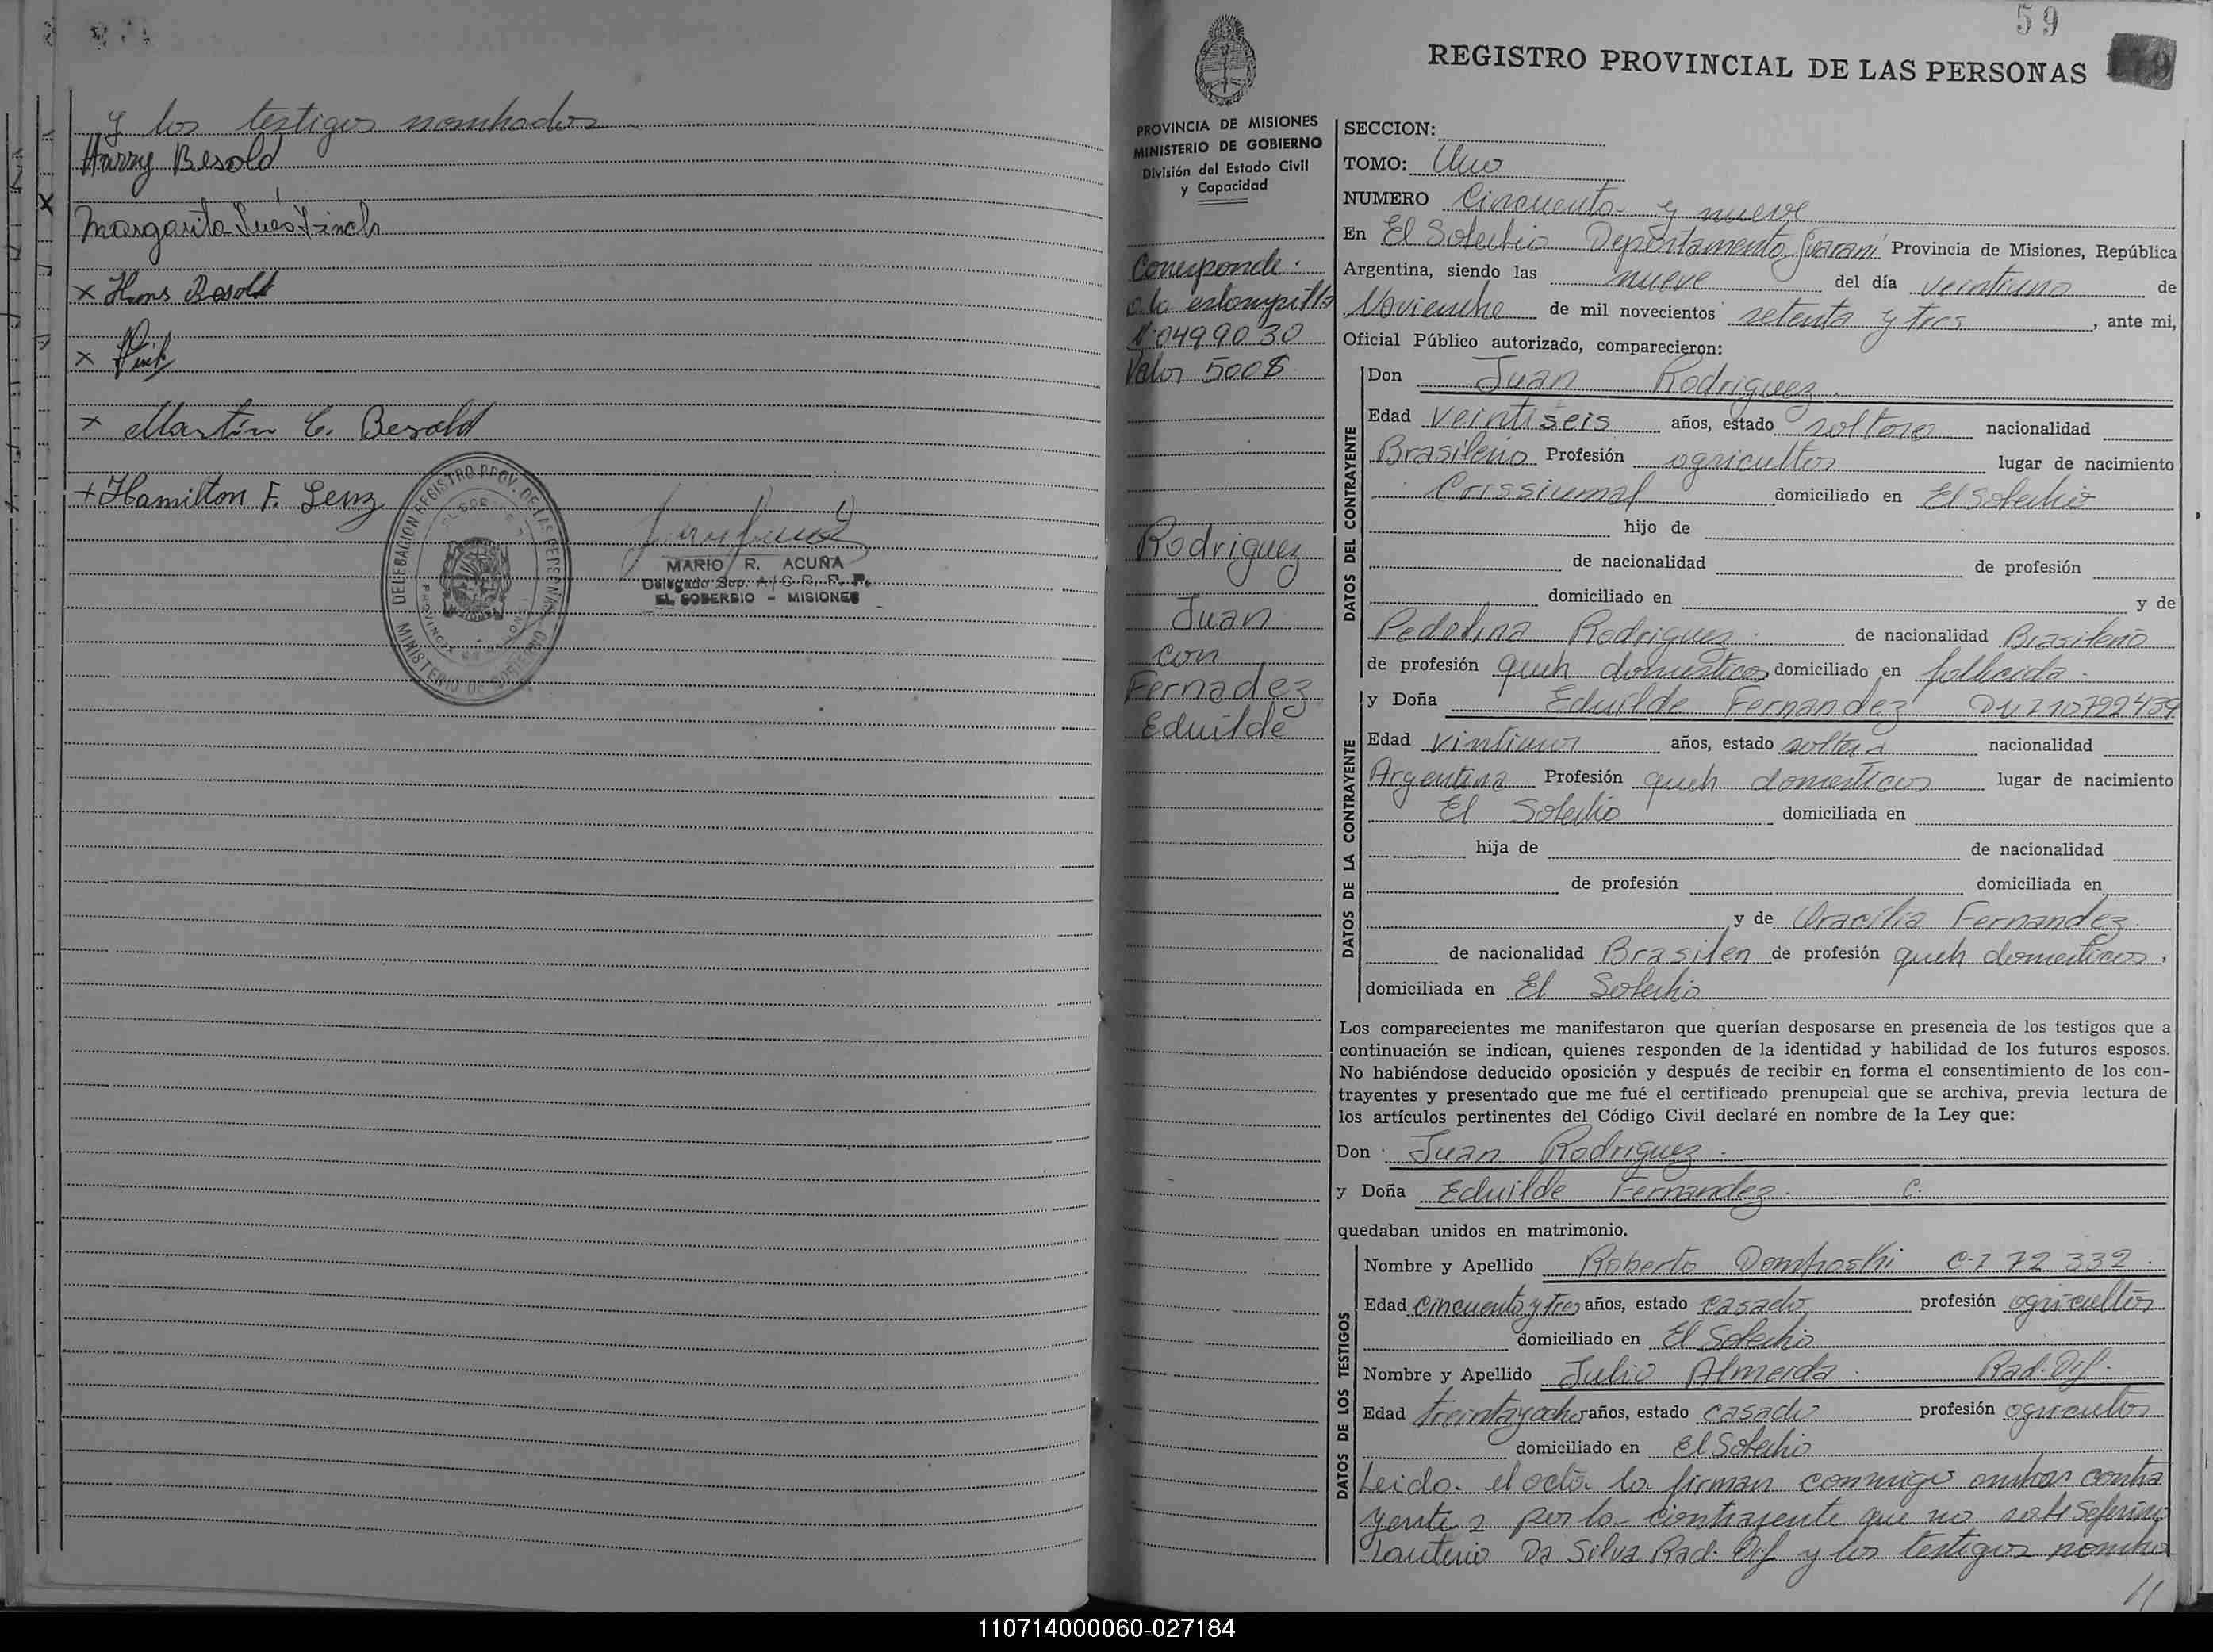 y los testigos nombrados
Harry Besold
Margarita Inés Finch
x Hans Besold
x
x Martin C. Besold
+ Hamilton F. Lenz
DELEGACION REGISTRO PROV. DE LAS PERSONAS
MINISTERIO DE GOBIERNO
MARIO R. ACUÑA
Delegado Sup. A/C R. P. P.
EL SOBERBIO - MISIONES
59
REGISTRO PROVINCIAL DE LAS PERSONAS
PROVINCIA DE MISIONES
MINISTERIO DE GOBIERNO
División del Estado Civil
y Capacidad
Corresponde
a la estampilla
Nº 0499030
Valor 500$
Rodriguez
Juan
con
Fernadez
Eduilde
SECCION:
TOMO: Uno
NUMERO Cincuenta y nueve
En El Soberbio Departamento Guarani Provincia de Misiones, República
Argentina, siendo las nueve del día veintiuno de
Noviembre de mil novecientos setenta y tres, ante mi,
Oficial Público autorizado, comparecieron:
DATOS DEL CONTRAYENTE
Don Juan Rodriguez
Edad veintiseis años, estado soltero nacionalidad
Brasileño Profesión agricultor lugar de nacimiento
Crissiumal domiciliado en El Soberbio
hijo de
de nacionalidad de profesión
domiciliado en y de
Rodriguez de nacionalidad Brasileña
de profesión queh domesticos domiciliado en fallecida
DATOS DE LA CONTRAYENTE
y Doña Eduilde Fernandez
Edad años, estado soltera nacionalidad
Argentina Profesión queh domesticos lugar de nacimiento
El Soberbio domiciliada en
hija de de nacionalidad
de profesión domiciliada en
y de Fernandez
de nacionalidad Brasilen de profesión queh domesticos,
domiciliada en El Soberbio
Los comparecientes me manifestaron que querían desposarse en presencia de los testigos que a
continuación se indican, quienes responden de la identidad y habilidad de los futuros esposos.
No habiéndose deducido oposición y después de recibir en forma el consentimiento de los con-
trayentes y presentado que me fué el certificado prenupcial que se archiva, previa lectura de
los artículos pertinentes del Código Civil declaré en nombre de la Ley que:
Don Juan Rodriguez
y Doña Eduilde Fernandez C.
quedaban unidos en matrimonio.
DATOS DE LOS TESTIGOS
Nombre y Apellido Roberto C.I 72 332
Edad cincuenta y tres años, estado casado profesión agricultor
domiciliado en El Soberbio
Nombre y Apellido Julio Almeida Rad. Dif.
Edad treinta y ocho años, estado casado profesión agricultor
domiciliado en El Soberbio
Leida el acta la firman conmigo ambos contra
yentes por la contrayente que no sabe
Da Silva Rad. Dif y los testigos nombra
110714000060-027184